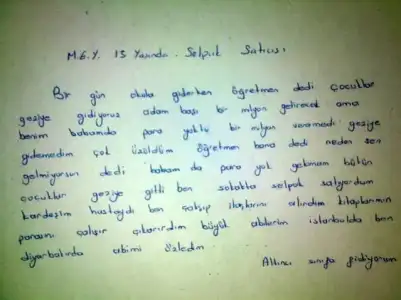 M.G.Y. 13 Yaşında. Selpak Satıcısı
Bir gün okula giderken öğretmen dedi çocuklar
geziye gidiyoruz adam başı bir milyon getirecek ama
benim babamda para yoktu bir milyon veremedi geziye
gidemedim çok üzüldüm öğretmen bana dedi neden sen
gelmiyorsun dedi babam da para yok gelmam bütün
çocuklar geziye gitti ben sokakta selpak satıyordum
kardeşim hastaydı ben çalışıp ilaçlarını alırdım kitaplarımın
parasını çalışır çıkarırdım büyük abilerim istanbulda ben
diyarbakırda abimi özledim
Altıncı sınıfa gidiyorum